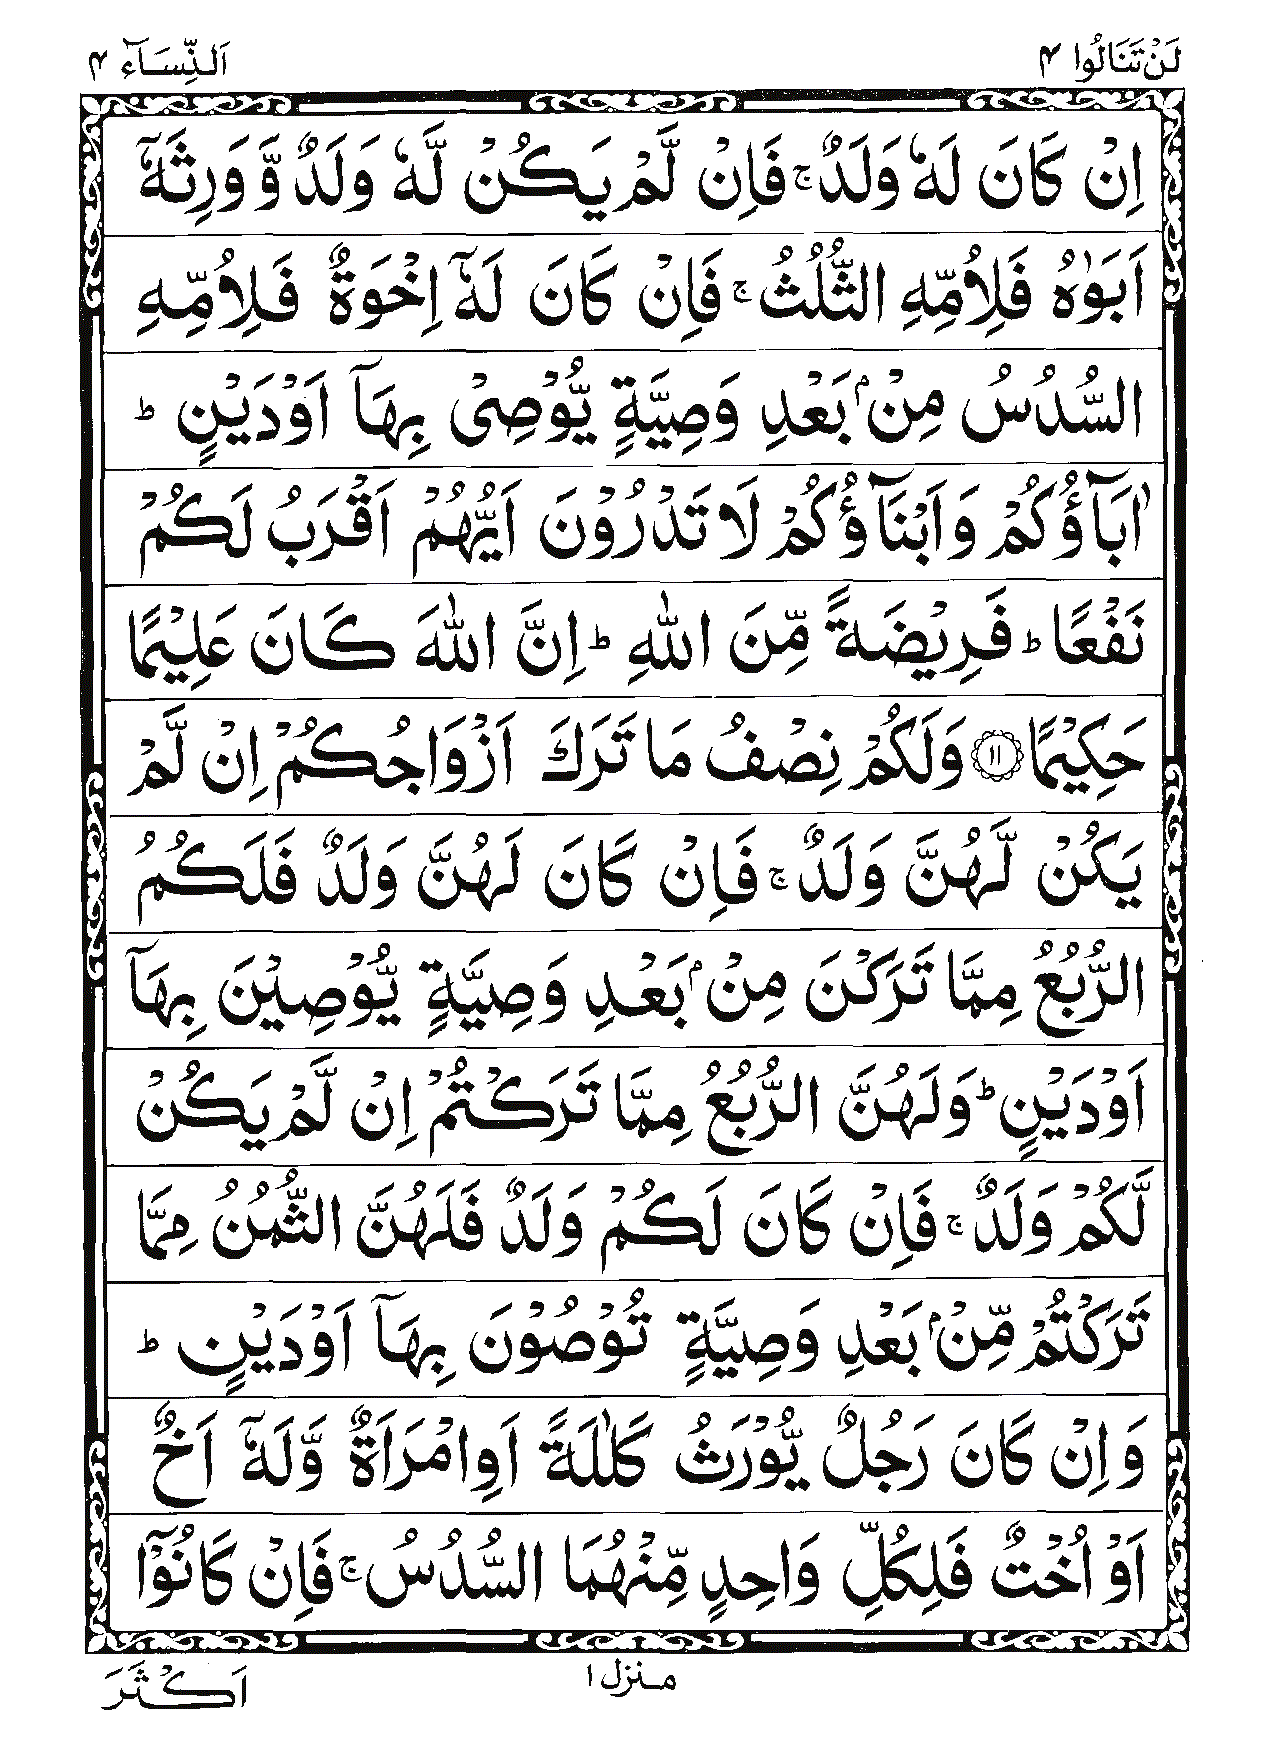 لَنْ تَنَالُوا ۴ اَلنِّسَآء ۴
اِنْ كَانَ لَهٗ وَلَدٌ ۚ فَاِنْ لَّمْ يَكُنْ لَّهٗ وَلَدٌ وَّ وَرِثَهٗٓ
اَبَوٰهُ فَلِاُمِّهِ الثُّلُثُ ۚ فَاِنْ كَانَ لَهٗٓ اِخْوَةٌ فَلِاُمِّهِ
السُّدُسُ مِنْۢ بَعْدِ وَصِيَّةٍ يُّوْصِىْ بِهَآ اَوْ دَيْنٍ ؕ
اٰبَآؤُكُمْ وَاَبْنَآؤُكُمْ لَا تَدْرُوْنَ اَيُّهُمْ اَقْرَبُ لَكُمْ
نَفْعًا ؕ فَرِيْضَةً مِّنَ اللّٰهِ ؕ اِنَّ اللّٰهَ كَانَ عَلِيْمًا
حَكِيْمًا ۝۱۱ وَلَكُمْ نِصْفُ مَا تَرَكَ اَزْوَاجُكُمْ اِنْ لَّمْ
يَكُنْ لَّهُنَّ وَلَدٌ ۚ فَاِنْ كَانَ لَهُنَّ وَلَدٌ فَلَكُمُ
الرُّبُعُ مِمَّا تَرَكْنَ مِنْۢ بَعْدِ وَصِيَّةٍ يُّوْصِيْنَ بِهَآ
اَوْ دَيْنٍ ؕ وَلَهُنَّ الرُّبُعُ مِمَّا تَرَكْتُمْ اِنْ لَّمْ يَكُنْ
لَّكُمْ وَلَدٌ ۚ فَاِنْ كَانَ لَكُمْ وَلَدٌ فَلَهُنَّ الثُّمُنُ مِمَّا
تَرَكْتُمْ مِّنْۢ بَعْدِ وَصِيَّةٍ تُوْصُوْنَ بِهَآ اَوْ دَيْنٍ ؕ
وَاِنْ كَانَ رَجُلٌ يُّوْرَثُ كَلٰلَةً اَوِ امْرَاَةٌ وَّلَهٗٓ اَخٌ
اَوْ اُخْتٌ فَلِكُلِّ وَاحِدٍ مِّنْهُمَا السُّدُسُ ۚ فَاِنْ كَانُوْٓا
منزل ۱
اَكْثَرَ